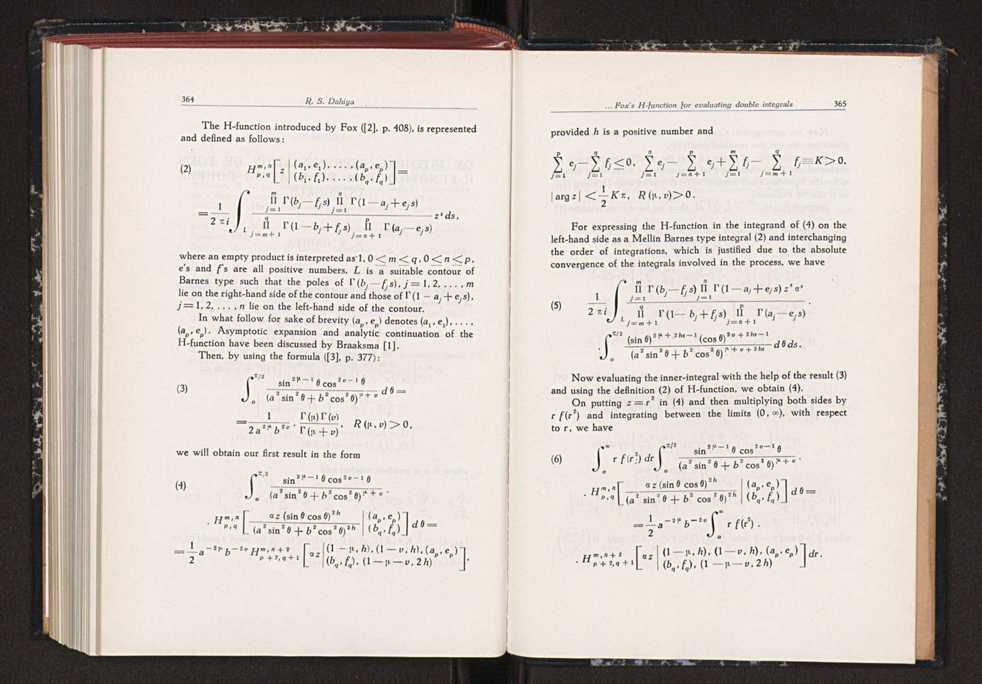 364
R. S. Dahiya
The H-function introduced by Fox ([2], p. 408), is represented
and defined as follows:
(2) H^{m, n}_{p, q} [ z | (a_1, e_1), . . . . , (a_p, e_p) / (b_1, f_1), . . . . , (b_q, f_q) ] =
= \frac{1}{2 π i} ∫_L \frac{Π_{j=1}^{m} Γ(b_j — f_j s) Π_{j=1}^{n} Γ(1 — a_j + e_j s)}{Π_{j=m+1}^{q} Γ(1 — b_j + f_j s) Π_{j=n+1}^{p} Γ(a_j — e_j s)} z^s ds,
where an empty product is interpreted as 1, 0 ≤ m ≤ q, 0 ≤ n ≤ p,
e's and f's are all positive numbers, L is a suitable contour of
Barnes type such that the poles of Γ(b_j — f_j s), j = 1, 2, . . . , m
lie on the right-hand side of the contour and those of Γ(1 — a_j + e_j s),
j = 1, 2, . . . , n lie on the left-hand side of the contour.
In what follow for sake of brevity (a_p, e_p) denotes (a_1, e_1), . . . . ,
(a_p, e_p). Asymptotic expansion and analytic continuation of the
H-function have been discussed by Braaksma [1].
Then, by using the formula ([3], p. 377):
(3) ∫_o^{π/2} \frac{sin^{2μ—1} θ cos^{2υ—1} θ}{(a^2 sin^2 θ + b^2 cos^2 θ)^{μ+υ}} d θ =
= \frac{1}{2 a^{2μ} b^{2υ}} · \frac{Γ(μ) Γ(υ)}{Γ(μ + υ)}, R (μ, υ) > 0,
we will obtain our first result in the form
(4) ∫_o^{π/2} \frac{sin^{2μ—1} θ cos^{2υ—1} θ}{(a^2 sin^2 θ + b^2 cos^2 θ)^{μ+υ}} ·
· H^{m, n}_{p, q} [ \frac{αz (sin θ cos θ)^{2h}}{(a^2 sin^2 θ + b^2 cos^2 θ)^{2h}} | (a_p, e_p) / (b_q, f_q) ] d θ =
= \frac{1}{2} a^{—2μ} b^{—2υ} H^{m, n+2}_{p+2, q+1} [ αz | (1 — μ, h), (1 — υ, h), (a_p, e_p) / (b_q, f_q), (1 — μ — υ, 2 h) ].
... Fox's H-function for evaluating double integrals
365
provided h is a positive number and
Σ_{j=1}^{p} e_j — Σ_{j=1}^{q} f_j ≤ 0, Σ_{j=1}^{n} e_j — Σ_{j=n+1}^{p} e_j + Σ_{j=1}^{m} f_j — Σ_{j=m+1}^{q} f_j ≡ K > 0,
| arg z | < \frac{1}{2} K π, R (μ, υ) > 0.
For expressing the H-function in the integrand of (4) on the
left-hand side as a Mellin Barnes type integral (2) and interchanging
the order of integrations, which is justified due to the absolute
convergence of the integrals involved in the process, we have
(5) \frac{1}{2 π i} ∫_L \frac{Π_{j=1}^{m} Γ(b_j — f_j s) Π_{j=1}^{n} Γ(1 — a_j + e_j s) z^s α^s}{Π_{j=m+1}^{q} Γ(1 — b_j + f_j s) Π_{j=n+1}^{p} Γ(a_j — e_j s)} ·
· ∫_o^{π/2} \frac{(sin θ)^{2μ+2hs—1} (cos θ)^{2υ+2hs—1}}{(a^2 sin^2 θ + b^2 cos^2 θ)^{μ+υ+2hs}} d θ ds.
Now evaluating the inner-integral with the help of the result (3)
and using the definition (2) of H-function, we obtain (4).
On putting z = r^2 in (4) and then multiplying both sides by
r f (r^2) and integrating between the limits (0, ∞), with respect
to r, we have
(6) ∫_o^∞ r f (r^2) dr ∫_o^{π/2} \frac{sin^{2μ—1} θ cos^{2υ—1} θ}{(a^2 sin^2 θ + b^2 cos^2 θ)^{μ+υ}} ·
· H^{m, n}_{p, q} [ \frac{αz (sin θ cos θ)^{2h}}{(a^2 sin^2 θ + b^2 cos^2 θ)^{2h}} | (a_p, e_p) / (b_q, f_q) ] d θ =
= \frac{1}{2} a^{—2μ} b^{—2υ} ∫_o^∞ r f (r^2) ·
· H^{m, n+2}_{p+2, q+1} [ αz | (1 — μ, h), (1 — υ, h), (a_p, e_p) / (b_q, f_q), (1 — μ — υ, 2 h) ] dr.